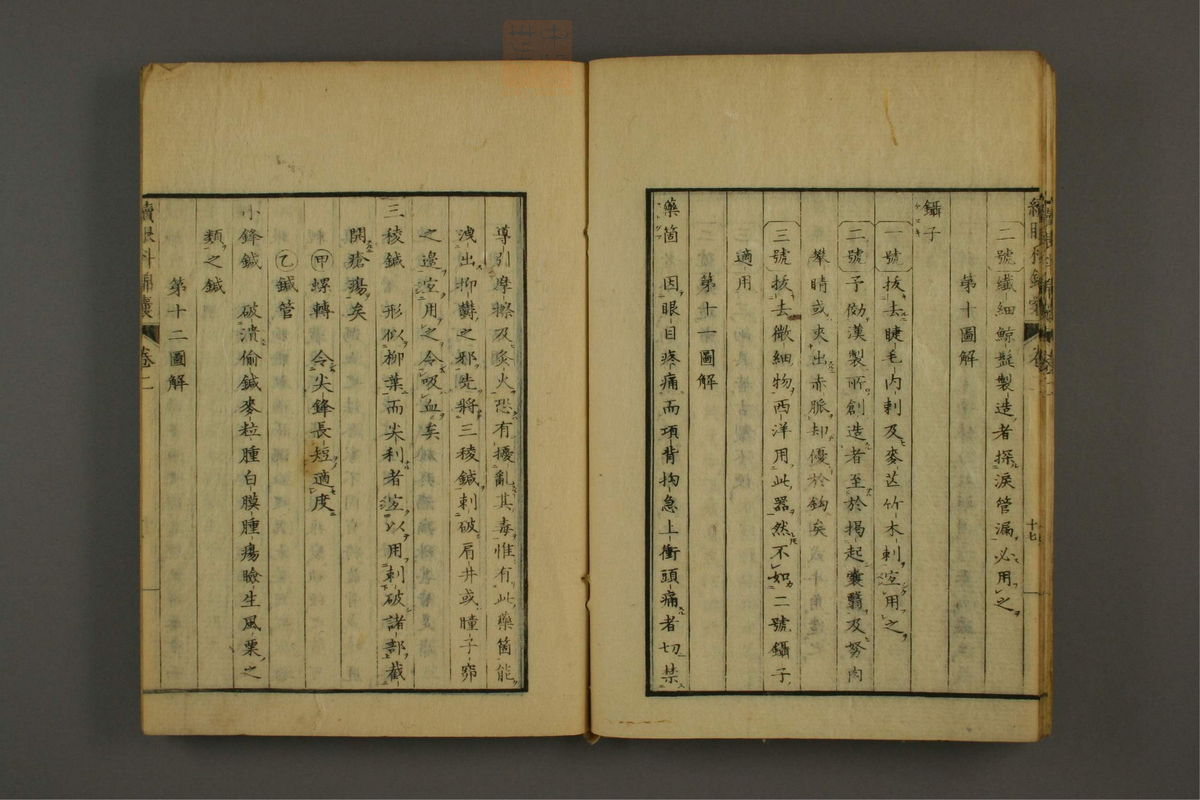 二號 纖細鯨髭製造者探淚管漏必用之
第十圖解
鑷子
一號 拔去睫毛內刺及麥芒竹木刺宜用之
二號 予倣漢製所創造者至於揭起囊翳及努肉
攀睛或夾出赤脈却優於鈎矣
三號 拔去微細物西洋用此器然不如二號鑷子
適用
第十一圖解
藥筒 因眼目疼痛而項背拘急上衝頭痛者切禁
十七
續眼科錦囊 卷二
導引摩擦及炙火恐有擾亂其毒惟有此藥筒能
洩出抑鬱之邪先將三稜鍼刺破肩井或瞳子窌
之邊宜用之令吸血矣
三稜鍼 形似柳葉而尖利者宜以用刺破諸部截
開瘡瘍矣
甲 螺轉 令尖鋒長短適度
乙 鍼管
小鋒鍼 破潰偷鍼麥粒腫白膜腫瘍瞼生風粟之
類之鍼
第十二圖解
續眼科錦囊 卷二